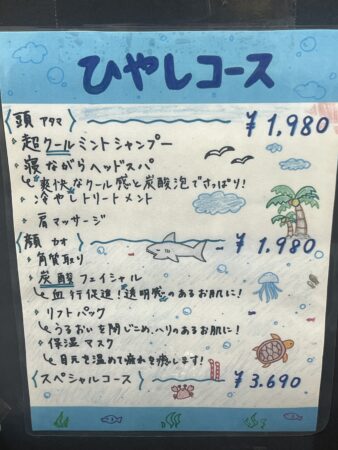 ひやしコース
頭 アタマ ¥1,980
・超クールミントシャンプー
・寝ながらヘッドスパ
↳爽快なクール感と炭酸泡でさっぱり!
・冷やしトリートメント
・肩マッサージ
顔 カオ ¥1,980
・角質取り
・炭酸フェイシャル
↳血行促進!透明感のあるお肌に!
・リフトパック
↳うるおいを閉じこめ、ハリのあるお肌に!
・保湿マスク
↳目元を温めて疲れを癒します!
スペシャルコース ¥3.690